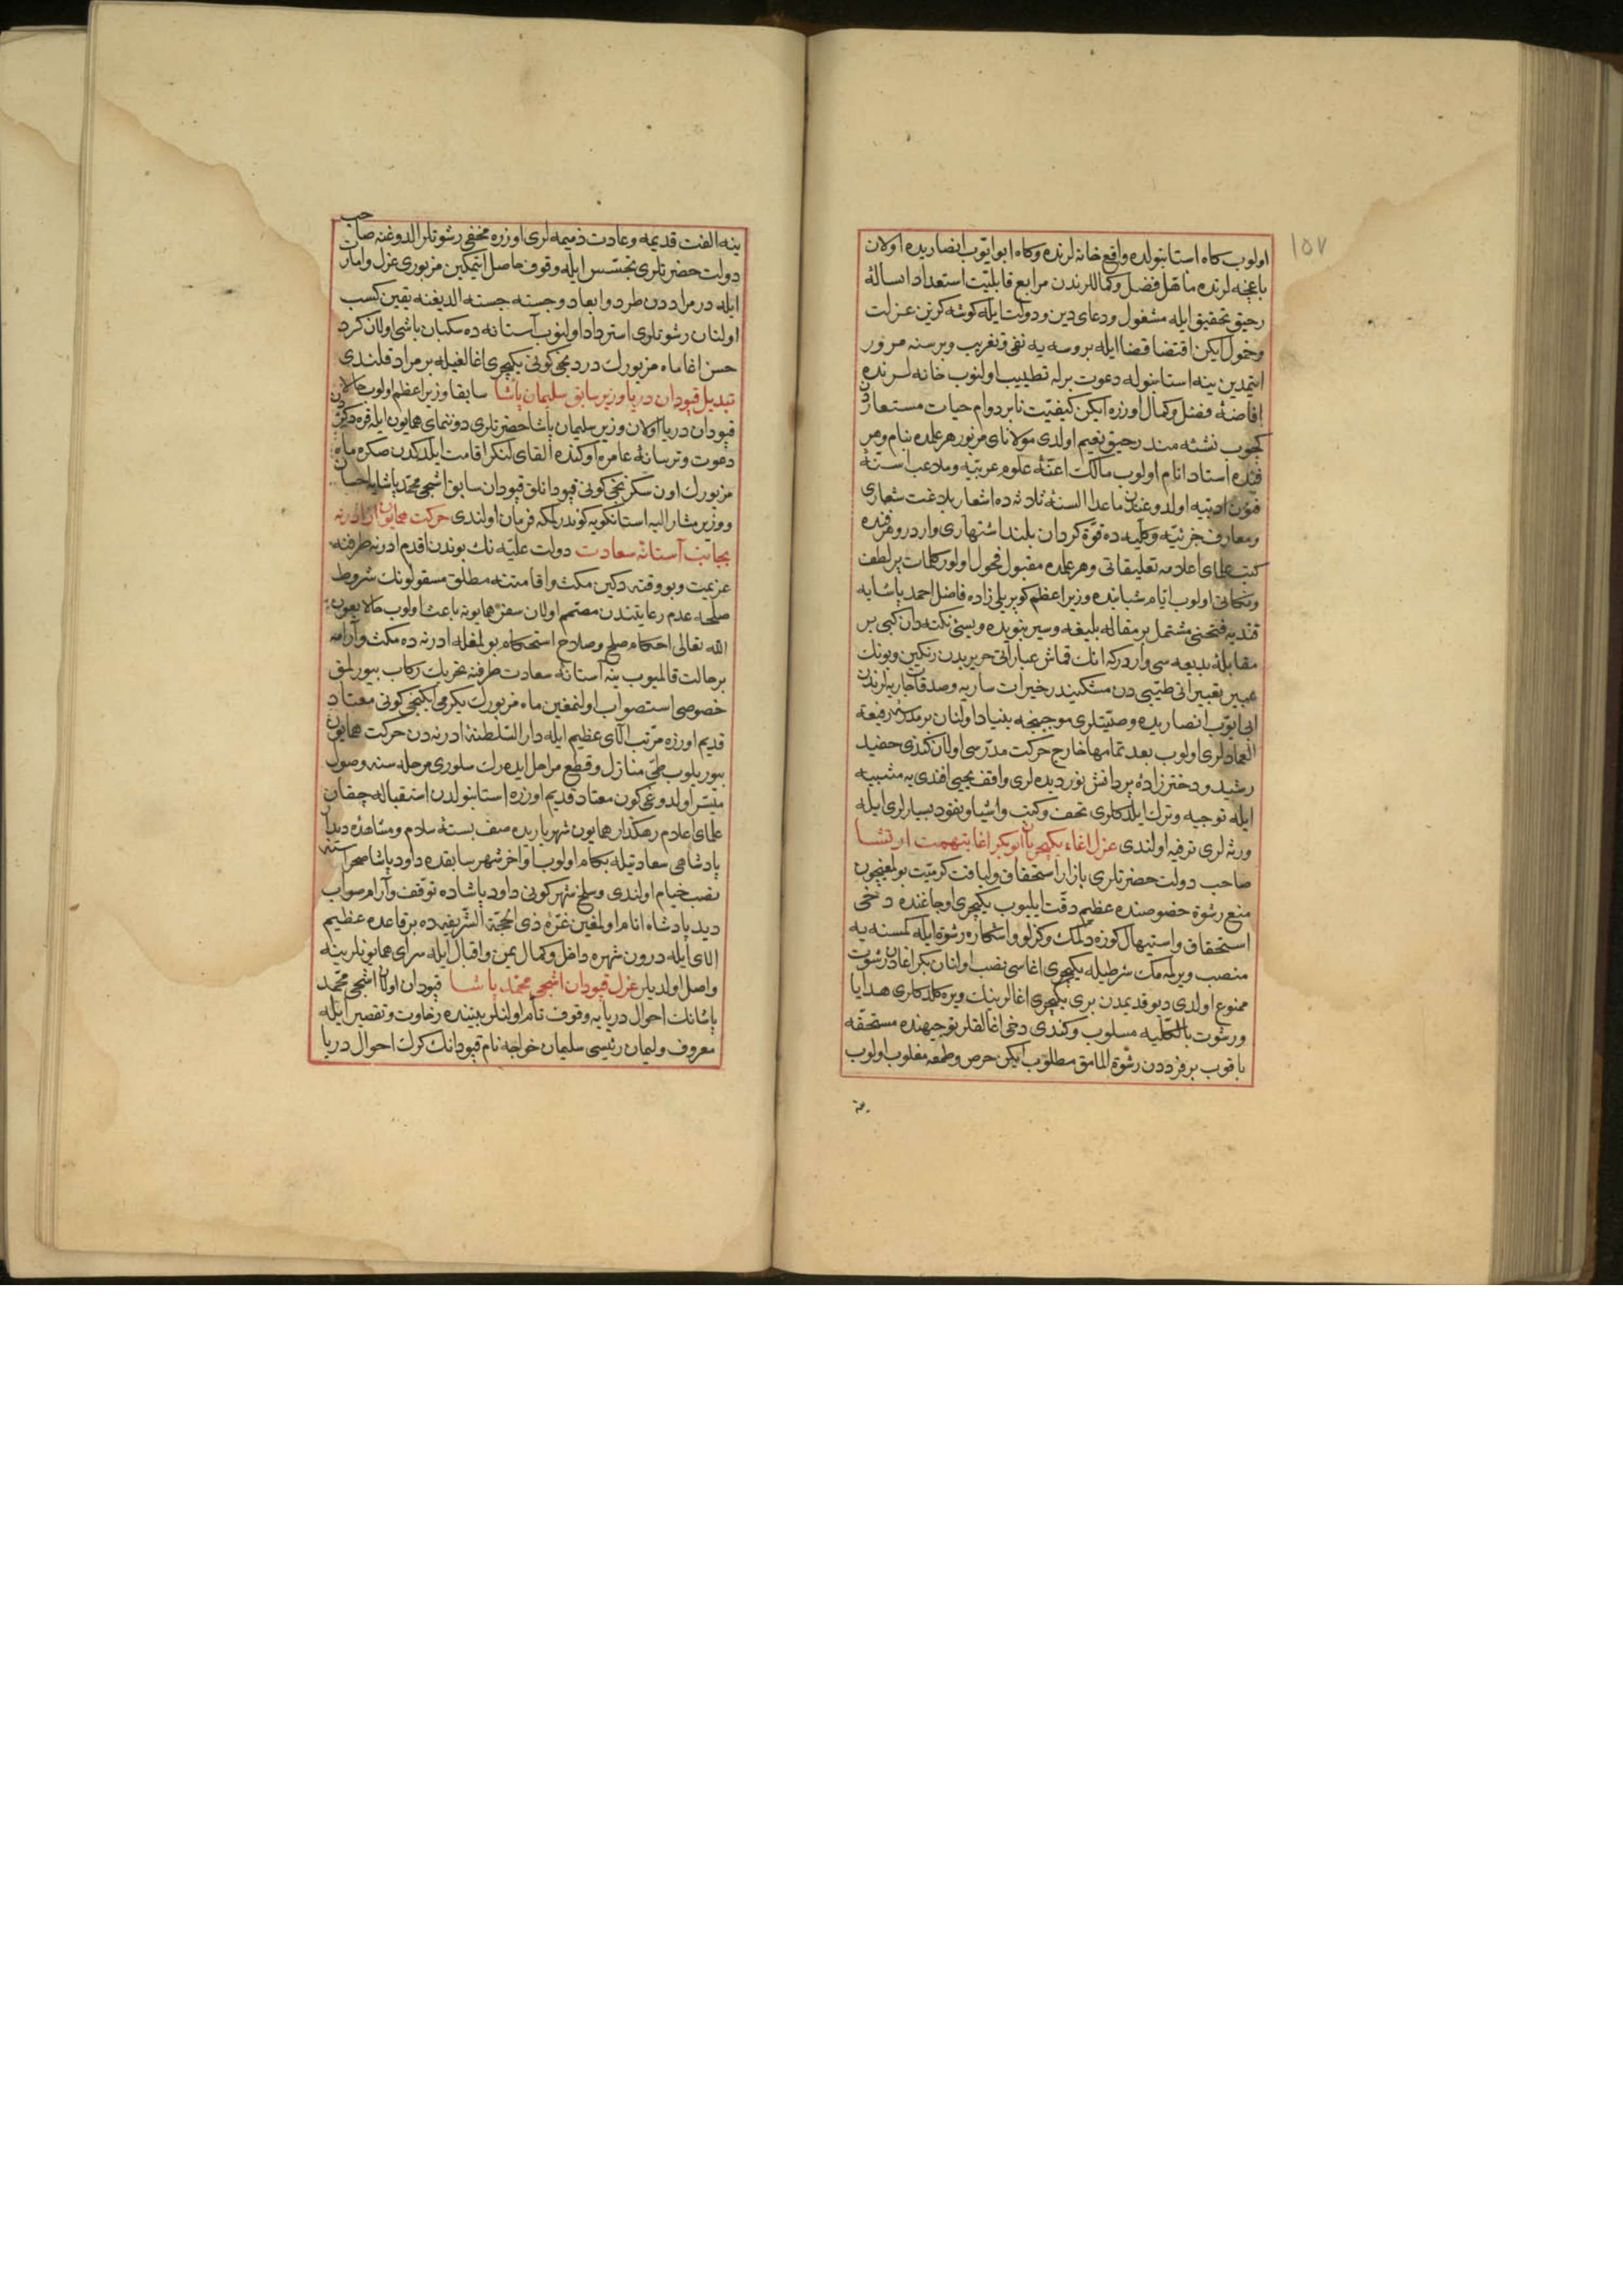 ١٥٧
اولوب كاه استانبولده واقع خانه لرنده وكاه ابوايوب انصاريده اولان
باغچه لرنده مناهل فضل وكماللرندن مرابع قابليت استعداد اسالهٔ
رحيق تحقيق ايله مشغول ودعاى دين ودولت ايله كوشه كزين عزلت
وخمول ايكن اقتضا قضا ايله بروسه يه نفى وتغريب وبر سنه مرور
ايتمدين ينه استانبوله دعوت برله تطييب اولنوب خانه لرنده
افاضهٔ فضل وكمال اوزره ايكن كيفيت نابر دوام حيات مستعاردن
كچوب نشئه مند رحيق نعيم اولدى مولاناى مزبور هر علمده بنام وهر
فنده استاد انام اولوب مالك اعنهٔ علوم عربيه وملاعب اسنهٔ
فنون ادبيه اولدوغندن ماعدا السنهٔ ثلاثه ده اشعار بلاغت شعارى
ومعارف جزئيه وكليه ده قوة كردان بلند اشتهارى واردر وهر فنده
كتب علماى اعلامه تعليقاتى وهر علمده مقبول فحول اولور كلمات پر لطف
ونكاتى اولوب ايام شبابنده وزير اعظم كوپريلى زاده فاضل احمد پاشايه
قنديه فتحنى مشتمل بر مقالهٔ بليغه وسير نبويده ويسى نكته دان كبى بر
مقابلهٔ بديعه سى واردركه انك قماش عباراتى حريريدن رنكين وبونك
عبير تعبيراتى طيبى دن مشكيندر خيرات ساريه وصدقات جاريه لرندن
ابى ايوب انصاريده وصيتلرى موجبنجه بنياد اولنان بر مدرسهٔ رفيعة
العمادلرى اولوب بعد تمامها خارج حركت مدرسى اولان كندى حفيد
رشيد ودختر زادهٔ پر دانش نور ديده لرى واقف يحيى افندى يه مشيبه
ايله توجيه وترك ايلدكلرى تحف وكتب واشيا ونقود بسيارلرى ايله
ورثه لرى ترفيه اولندى عزل اغاء يكيچريان ابو بكر اغا بتهمت ارتشا
صاحب دولت حضرتلرى بازار استحقاق ولياقت كرميت بولمغيچون
منع رشوة خصوصنده عظيم دقت ايليوب يكيچرى اوجاغنده دخى
استحقاق واستيهال كوزه دلمك وكزلو واشكاره رشوة ايله كمسنه يه
منصب ويرلمه مك شرطيله يكيچرى اغاسى نصب اولنان بكر اغادن رشوت
ممنوع اولدى ديو قديمدن برى يكيچرى اغالرينك ويره كلدكلرى هدايا
ورشوت بالكليه مسلوب وكندى دخى اغالقلر توجيهنده مستحقه
باقوب بر فرددن رشوة المامق مطلوب ايكن حرص وطمعه مغلوب اولوب
ينه
ينه الفت قديمه وعادت ذميمه لرى اوزره مخفى رشوتلر الدوغنه صاحب
دولت حضرتلرى تجسس ايله وقوف حاصل ايتمكين مزبورى عزل وامار
ايله در مراددن طرد وابعاد وجسته جسته الديغنه يقين كسب
اولنان رشوتلرى استرداد اولنوب آستانه ده سكبان باشى اولان كرد
حسن اغا ماه مزبورك دردنجى كونى يكيچرى اغالغيله بر مراد قلندى
تبديل قپودان دريا وزير سابق سليمان پاشا سابقا وزير اعظم اولوب حالا
قپودان دريا اولان وزير سليمان پاشا حضرتلرى دوننماى همايون ايله قره دكزدن
دعوت وترسانهٔ عامره اوكنده القاى لنكر اقامت ايلدكدن صكره ماه
مزبورك اون سكزنجى كونى قپودانلق قپودان سابق اشجى محمد پاشايه احسان
ووزير مشار اليه استانكويه كوندرلمكه فرمان اولندى حركت همايون از ادرنه
بجانب آستانهٔ سعادت دولت عليه نك بوندن اقدم ادرنه طرفنه
عزيمت وبو وقته دكين مكث واقامتنه مطلق مسقولونك شروط
صلحه عدم رعايتندن مصمم اولان سفر همايونه باعث اولوب حالا بعون
الله تعالى احكام صلح وصلاح استحكام بولمغله ادرنه ده مكث وآرامه
بر حالت قالميوب ينه آستانهٔ سعادت طرفنه تحريك ركاب بيورلمق
خصوصى استصواب اولنمغين ماه مزبورك يكرمى ايكنجى كونى معتاد
قديم اوزره مرتب آلاى عظيم ايله دار السلطنهٔ ادرنه دن حركت همايون
بيوريلوب طى منازل وقطع مراحل ايده رك سلورى مرحله سنه وصول
ميسر اولدوغى كون معتاد قديم اوزره استانبولدن استقباله چقان
علماى اعلام رهكذار همايون شهرياريده صف بستهٔ سلام ومشاهدهٔ ديدار
پادشاهى سعادتيله بكام اولوب اواخر شهر سابقده داود پاشا صحراسنه
نصب خيام اولندى وسلخ شهر كونى داود پاشاده توقف وآرام صواب
ديد پادشاه انام اولمغين غرهٔ ذى الحجة الشريفه ده بر قاعده عظيم
الاى ايله درون شهره داخل وكمال يمن واقبال ايله سراى همايونلرينه
واصل اولديلر عزل قپودان اشجى محمد پاشا قپودان اولان اشجى محمد
پاشانك احوال دريايه وقوف تام اولنلر بيننده رخاوت وتقصير ايله
معروف وليمان رئيسى سليمان خواجه نام قپودانك كرك احوال دريا